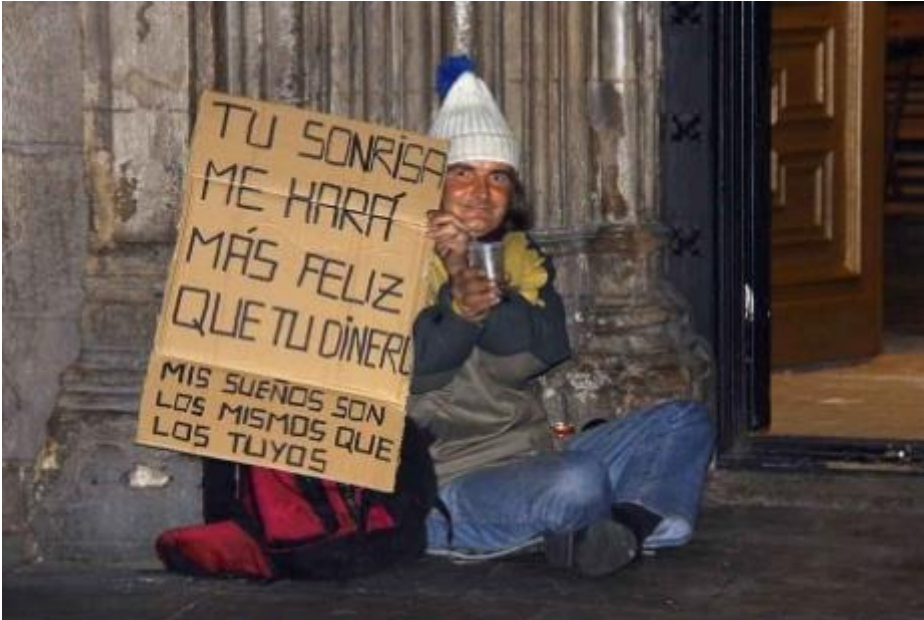 TU SONRISA
ME HARÁ
MÁS FELIZ
QUE TU DINERO
MIS SUEÑOS SON
LOS MISMOS QUE
LOS TUYOS